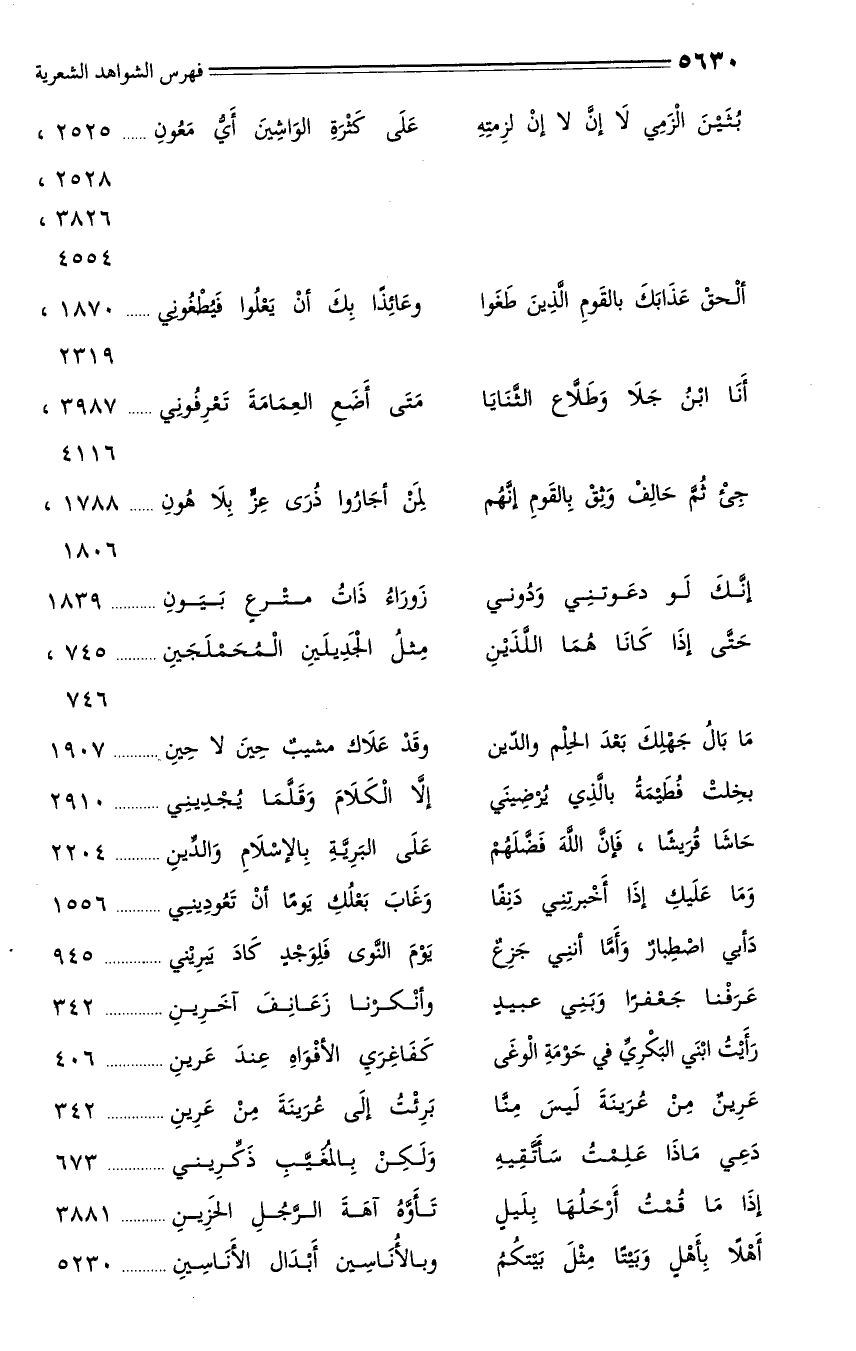 ٥٦٣٠ فهرس الشواهد الشعرية
بُثَيْنَ الْزَمِي لَا إنَّ لا إنْ لزِمتِهِ عَلَى كَثْرَةِ الوَاشِينَ أَيُّ مَعُونِ ...... ٢٥٢٥ ،
٢٥٢٨ ،
٣٨٢٦ ،
٤٥٥٤
ألْحقْ عَذَابَكَ بالقَومِ الَّذِينَ طَغَوا وعَائِذًا بِكَ أنْ يَعْلُوا فَيُطْغُونِي ...... ١٨٧٠ ،
٢٣١٩
أَنَا ابْنُ جَلَا وَطَلَّاع الثَّنَايَا مَتَى أَضَعِ العِمَامَةَ تَعْرِفُونِي ...... ٣٩٨٧ ،
٤١١٦
جِئْ ثُمَّ حَالِفْ وَثِقْ بِالقَومِ إنَّهُم لِمَنْ أجَارُوا ذُرَى عِزٍّ بِلَا هُونِ ...... ١٧٨٨ ،
١٨٠٦
إنَّـكَ لَـو دعَـوتـنِـي وَدُونـي زَورَاءُ ذَاتُ مـتْـرعٍ بَـيَـونِ ........... ١٨٣٩
حَتَّى إذَا كَانَا هُمَا اللَّذَيْنِ مِثلُ الْجَدِيلَينِ الْـمُحَمْلَجَينِ .......... ٧٤٥ ،
٧٤٦
مَا بَالُ جَهْلِكَ بَعْدَ الحِلْم والدّين وقَدْ عَلَاك مشيبٌ حِينَ لا حِينِ ........... ١٩٠٧
بخِلتْ فُطَيْمَةُ بالَّذِي يُرْضِينَي إلَّا الْكَلَامَ وَقَلَّمَا يُجْدِينِي ........... ٢٩١٠
حَاشَا قُرَيشًا ، فَإنَّ اللَّهَ فَضَّلَهُمْ عَلَى البَرِيَّةِ بِالإسْلَامِ وَالدِّينِ ........... ٢٢٠٤
وَمَا عَلَيكِ إذَا أَخْبرتِنِي دَنِفًا وَغَابَ بَعْلُكِ يَومًا أنْ تَعُودِينِـي ........... ١٥٥٦
دَأبي اصْطِبارٌ وَأمَّا أننِي جَزِعٌ يَوْمَ النَّوى فَلِوَجْدٍ كَادَ يَبرِيْني .............. ٩٤٥
عَـرَفْنا جَـعْفـرًا وَبَنِي عـبيـدٍ وأنْـكـرْنـا زَعَـانِـفَ آخَـرِيـنِ .............. ٣٤٢
رَأَيْتُ ابْنَي البَكْرِيِّ في حَوْمَةِ الْوغَى كَفَاغِرَيِ الأفْوَاهِ عِندَ عَرينِ .............. ٤٠٦
عَرِينٌ مِنْ عُرَينَةَ لَيسَ مِنَّا بَرِئْتُ إلَى عُرَينَةَ مِنْ عَرِينِ .............. ٣٤٢
دَعِي مَاذَا عَلِمْتُ سَأَتَّقِيهِ وَلَـكِنْ بِـالمُغَيَّـبِ ذَكِّـرِينـي .............. ٦٧٣
إذَا مَا قُمْتُ أَرْحَلُهَا بِلَيلٍ تَـأَوَّهُ آهَـةَ الـرَّجُـلِ الحَزِيـنِ ........... ٣٨٨١
أَهْلًا بِأَهْلٍ وَبَيْتًا مِثْلَ بَيْتكُمُ وبـالأُنَـاسِين أَبْدَال الأَنَـاسِـينِ ........... ٥٢٣٠